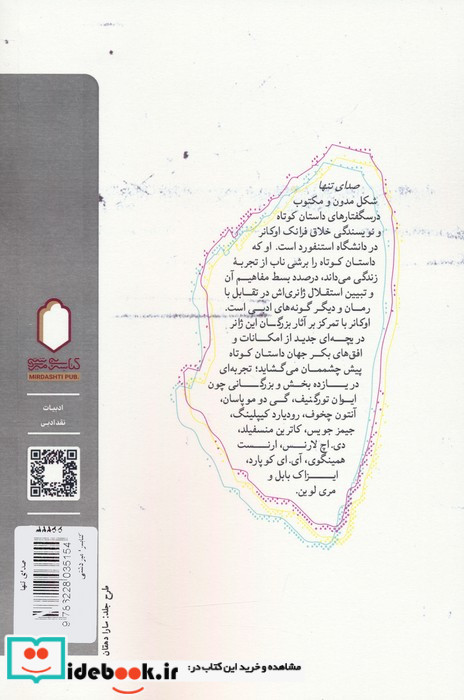 صدای تنها
شکل مدون و مکتوب
درسگفتارهای داستان کوتاه
و نویسندگی خلاق فرانک اوکانر
در دانشگاه استنفورد است. او که
داستان کوتاه را برشی ناب از تجربهٔ
زندگی می‌داند، درصدد بسط مفاهیم آن
و تبیین استقلال ژانری‌اش در تقابل با
رمان و دیگر گونه‌های ادبی است.
اوکانر با تمرکز بر آثار بزرگان این ژانر
دریچه‌ای جدید از امکانات و
افق‌های بکر جهان داستان کوتاه
پیش چشممان می‌گشاید؛ تجربه‌ای
در یازده بخش و بزرگانی چون
ایوان تورگنیف، گی دو موپاسان،
آنتون چخوف، رودیارد کیپلینگ،
جیمز جویس، کاترین منسفیلد،
دی. اچ لارنس، ارنست
همینگوی، آ. ای کوپارد،
ایزاک بابل و
مری لوین.
MIRDASHTI PUB.
ادبیات
نقد ادبی
کتابسرا میردشتی
صدای تنها
9786228035154
طرح جلد: سارا دهقان
مشاهده و خرید این کتاب در:
idebook.ir